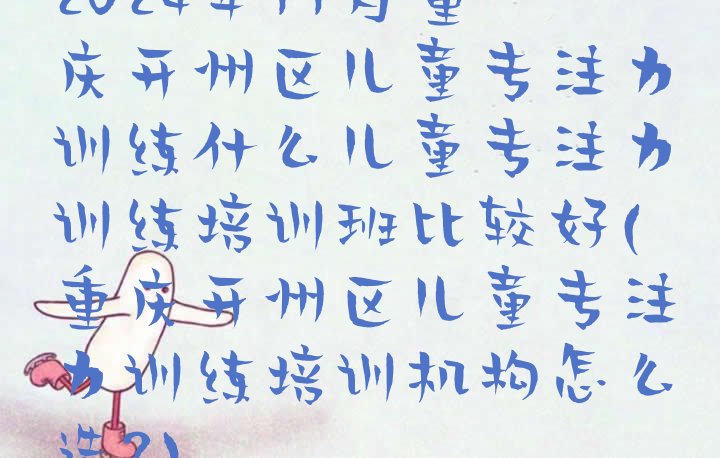 2024年11月重
庆开州区儿童专注力
训练什么儿童专注力
训练培训班比较好(
重庆开州区儿童专注
力训练培训机构怎么
选?)